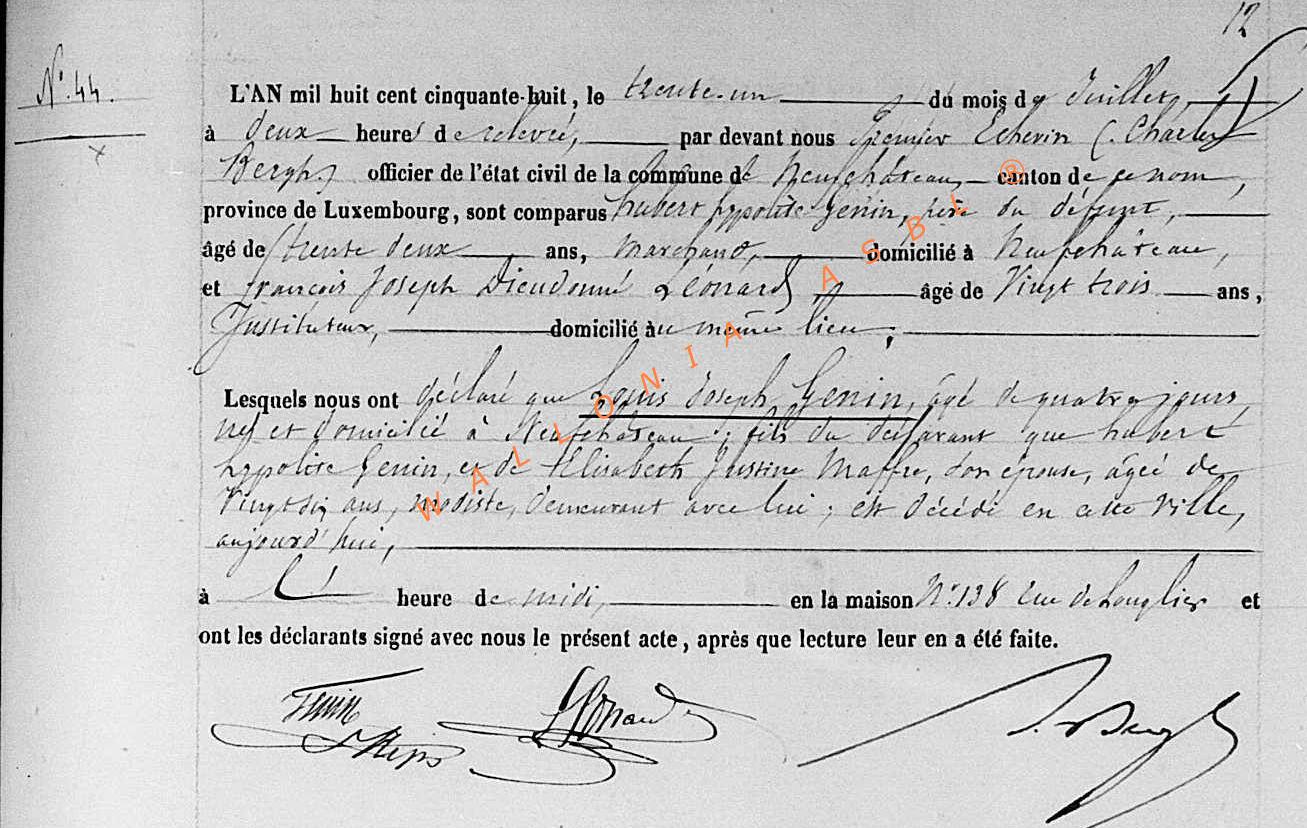 12
N° 44.
L'AN mil huit cent cinquante-huit, le trente-un du mois de Juillet,
à deux heures de relevée, par devant nous premier Echevin (Charles
Bergh) officier de l'état civil de la commune de Neufchâteau, canton de ce nom,
province de Luxembourg, sont comparus hubert hypolite Genin, père du défunt,
âgé de trente deux ans, marchand, domicilié à Neufchâteau,
et françois Joseph Dieudonné Léonard âgé de Vingt trois ans,
Instituteur, domicilié au même lieu;
Lesquels nous ont déclaré que Louis Joseph Genin, âgé de quatre jours,
né et domicilié à Neufchâteau; fils du déclarant que hubert
hypolite Genin, et de Elisabeth Justine Maffre, son épouse, âgée de
Vingt six ans, modiste, demeurant avec lui; est décédé en cette ville,
aujourd'hui,
à l' heure de midi, en la maison N° 138 rue de Longlier et
ont les déclarants signé avec nous le présent acte, après que lecture leur en a été faite.
Genin Léonard Bergh
WALLONIA ASBL ®